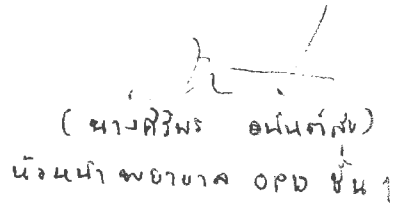 (นางศิริพร อนันต์สุข)
หัวหน้าพยาบาล OPD ชั้น 1